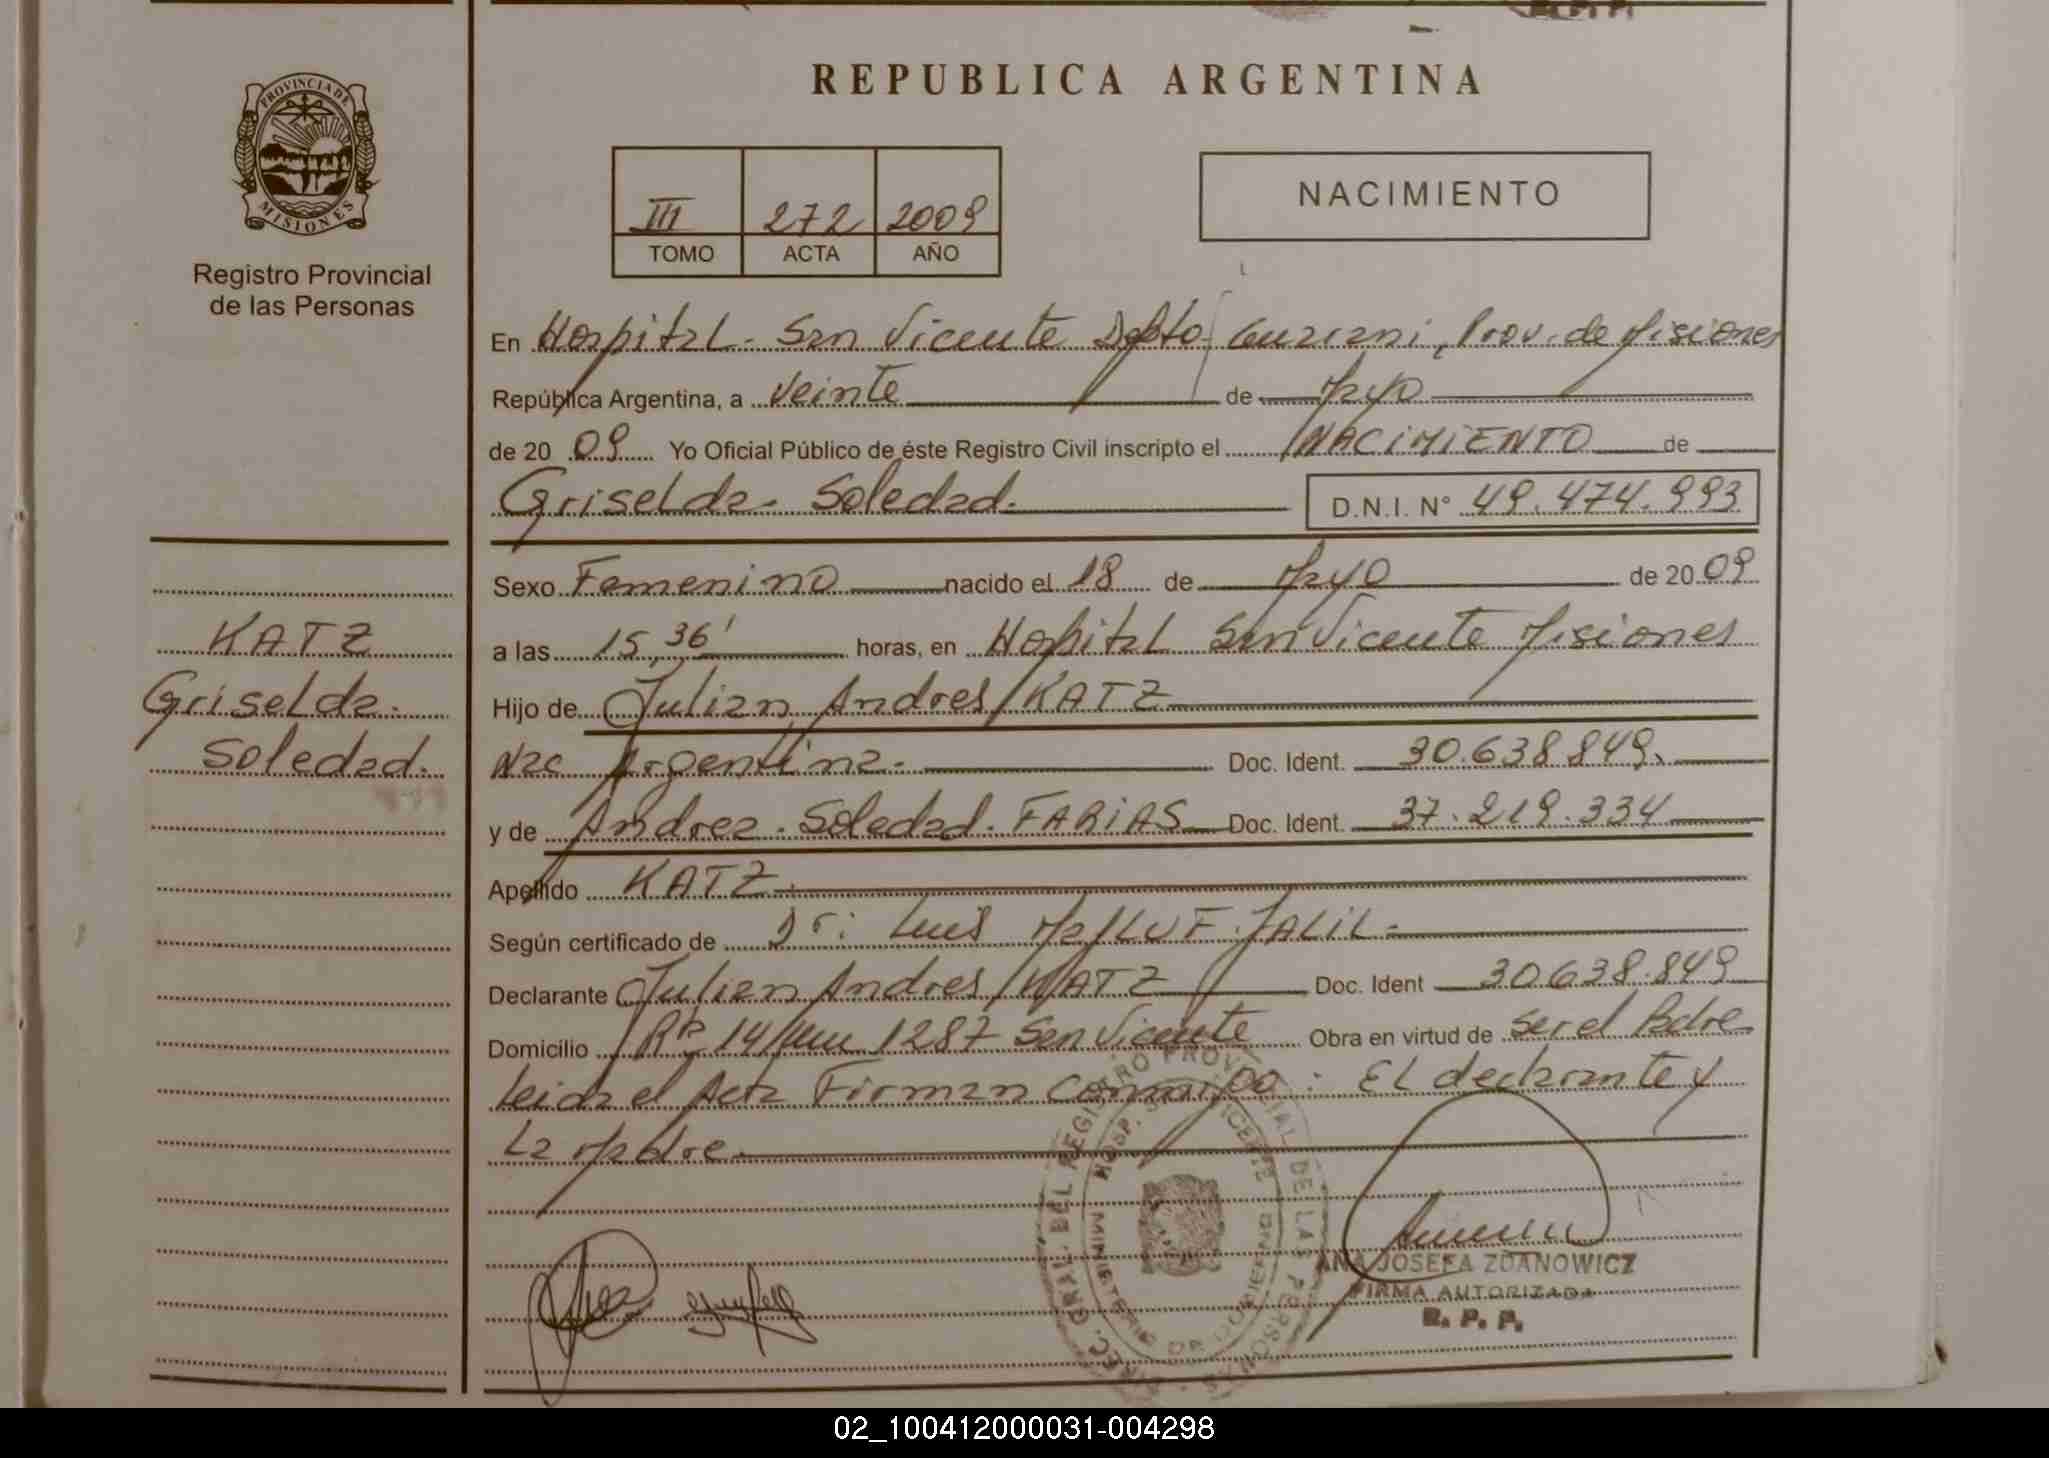 REPUBLICA ARGENTINA
PROVINCIA DE
MISIONES
Registro Provincial
de las Personas
III 272 2009
TOMO ACTA AÑO
NACIMIENTO
En Hospital - San Vicente Dpto Guarani, Prov. de Misiones
República Argentina, a Veinte de Mayo
de 20 09 Yo Oficial Público de éste Registro Civil inscripto el NACIMIENTO de
Griselda - Soledad. D.N.I. N° 49.474.993
Sexo Femenino nacido el 18 de Mayo de 20 09
a las 15,36' horas, en Hospital San Vicente Misiones
Hijo de Julian Andres KATZ
Nac Argentina - Doc. Ident. 30.638 849.
y de Andrea - Soledad - FARIAS Doc. Ident. 37.219.334
Apellido KATZ
Según certificado de Dr: Luis JALIL -
Declarante Julian Andres KATZ Doc. Ident 30638.849
Domicilio 14 1287 San Vicente Obra en virtud de Ser el Padre
Leida el Acta Firman Conmigo : El declarante y
La Madre -
KATZ
Griselda -
Soledad.
DIREC. GRAL. DEL REGISTRO PROVINCIAL DE LAS PERSONAS
HOSP. SAN VICENTE
MINISTERIO DE GOBIERNO
ANA JOSEFA ZDANOWICZ
FIRMA AUTORIZADA
R. P. P.
02_100412000031-004298